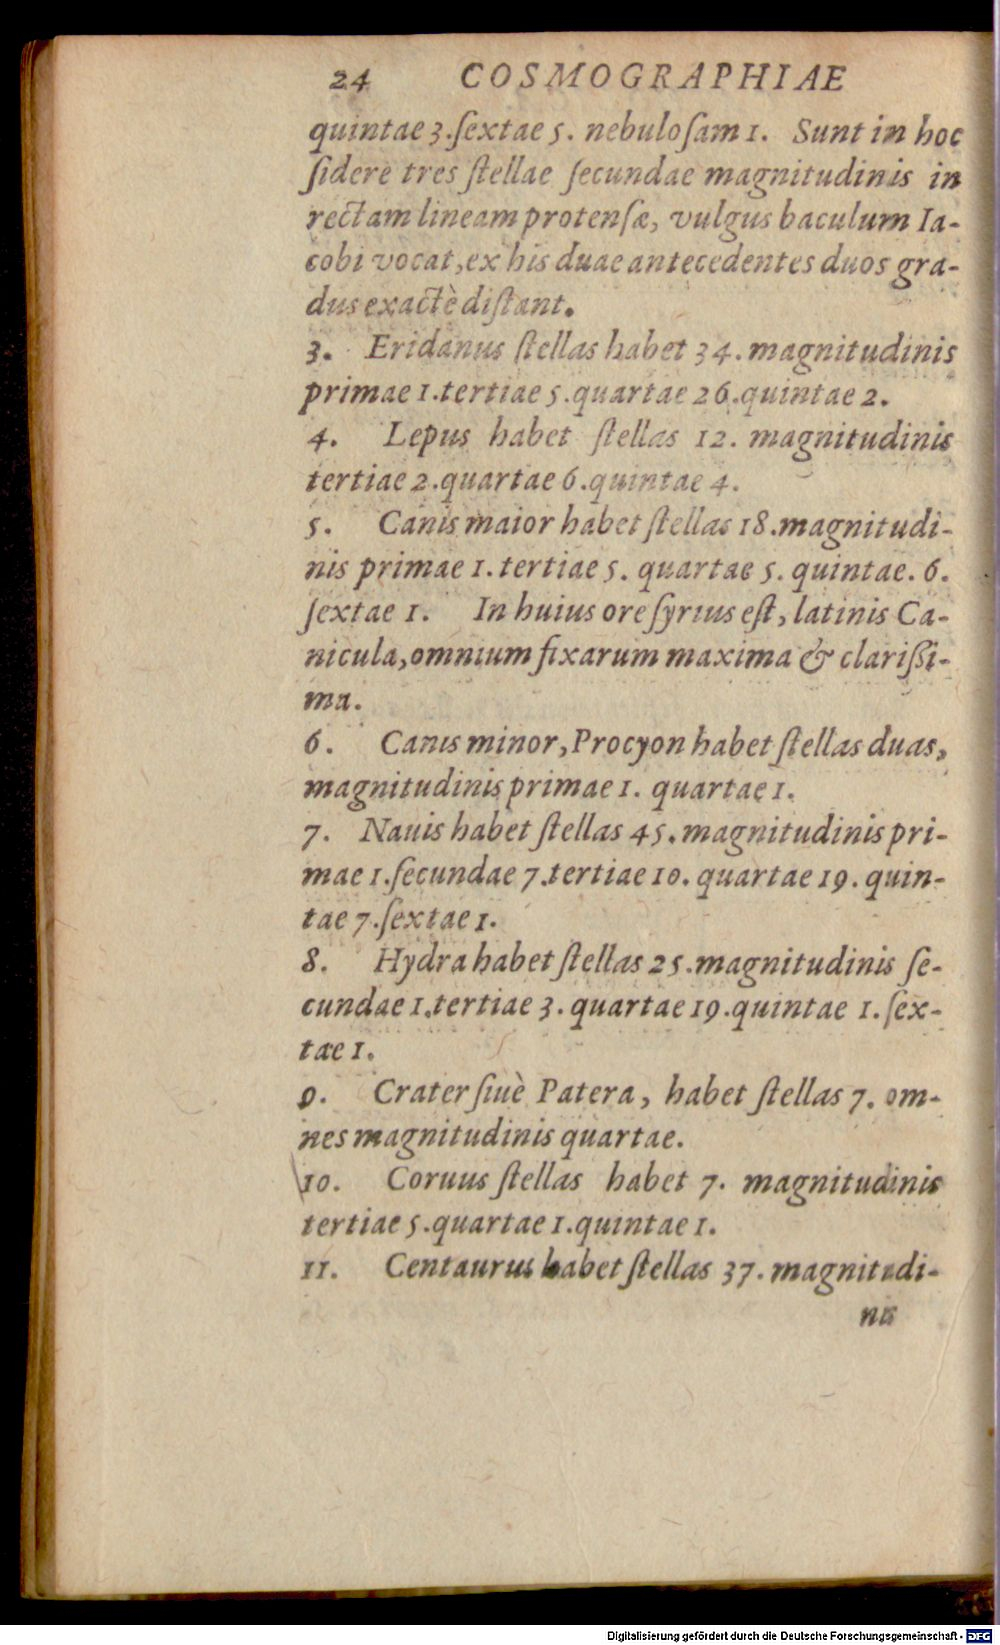 24 COSMOGRAPHIAE
quintae 3.ſextae 5. nebuloſam 1. Sunt in hoc
ſidere tres ſtellae ſecundae magnitudinis in
rectam lineam protenſæ, vulgus baculum Ia-
cobi vocat, ex his duae antecedentes duos gra-
dus exactè diſtant.
3. Eridanus ſtellas habet 34. magnitudinis
primae 1.tertiae 5.quartae 26.quintae 2.
4. Lepus habet ſtellas 12. magnitudinis
tertiae 2.quartae 6.quintae 4.
5. Canis maior habet ſtellas 18.magnitudi-
nis primae 1. tertiae 5. quartae 5. quintae. 6.
ſextae 1. In huius ore ſyrius eſt, latinis Ca-
nicula, omnium fixarum maxima & clariſsi-
ma.
6. Canis minor, Procyon habet ſtellas duas,
magnitudinis primae 1. quartae 1.
7. Nauis habet ſtellas 45. magnitudinis pri-
mae 1.ſecundae 7.tertiae 10. quartae 19. quin-
tae 7.ſextae 1.
8. Hydra habet ſtellas 25.magnitudinis ſe-
cundae 1.tertiae 3. quartae 19.quintae 1. ſex-
tae 1.
9. Crater ſiuè Patera, habet ſtellas 7. om-
nes magnitudinis quartae.
10. Coruus ſtellas habet 7. magnitudinis
tertiae 5.quartae 1.quintae 1.
11. Centaurus habet ſtellas 37. magnitudi-
nis
Digitalisierung gefördert durch die Deutsche Forschungsgemeinschaft - DFG